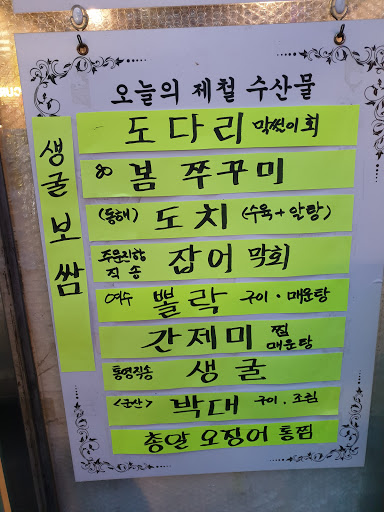 오늘의 제철 수산물
생굴보쌈
도다리 막썬이회
봄 쭈꾸미
(동해) 도치 (수육+알탕)
주문진항 직송 잡어 막회
여수 뽈락 구이·매운탕
간제미 찜 매운탕
통영직송 생굴
<군산> 박대 구이.조림
총알 오징어 통찜